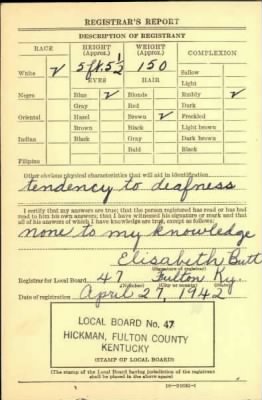 REGISTRAR'S REPORT
DESCRIPTION OF REGISTRANT
RACE HEIGHT (Approx.) WEIGHT (Approx.) COMPLEXION
White ✓ 5 ft. 5½ 150 Sallow
EYES HAIR Light
Negro Blue ✓ Blonde Ruddy ✓
Gray Red Dark
Oriental Hazel Brown ✓ Freckled
Brown Black Light brown
Indian Black Gray Dark brown
Bald Black
Filipino
Other obvious physical characteristics that will aid in identification
tendency to deafness
I certify that my answers are true; that the person registered has read or has had
read to him his own answers; that I have witnessed his signature or mark and that
all of his answers of which I have knowledge are true, except as follows:
none to my knowledge
Elisabeth Butt
(Signature of registrar)
Registrar for Local Board 47 Fulton Ky.
(Number) (City or county) (State)
Date of registration April 27, 1942
LOCAL BOARD No. 47
HICKMAN, FULTON COUNTY
KENTUCKY
(STAMP OF LOCAL BOARD)
(The stamp of the Local Board having jurisdiction of the registrant
shall be placed in the above space)